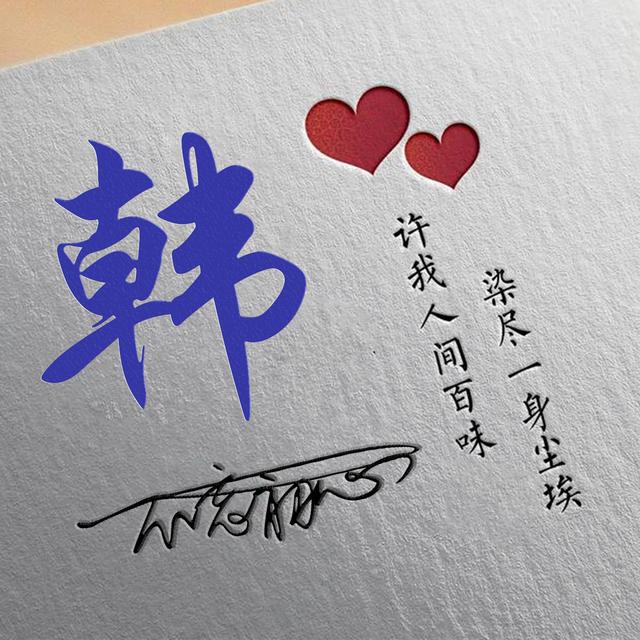 韩
许我人间百味
染尽一身尘埃